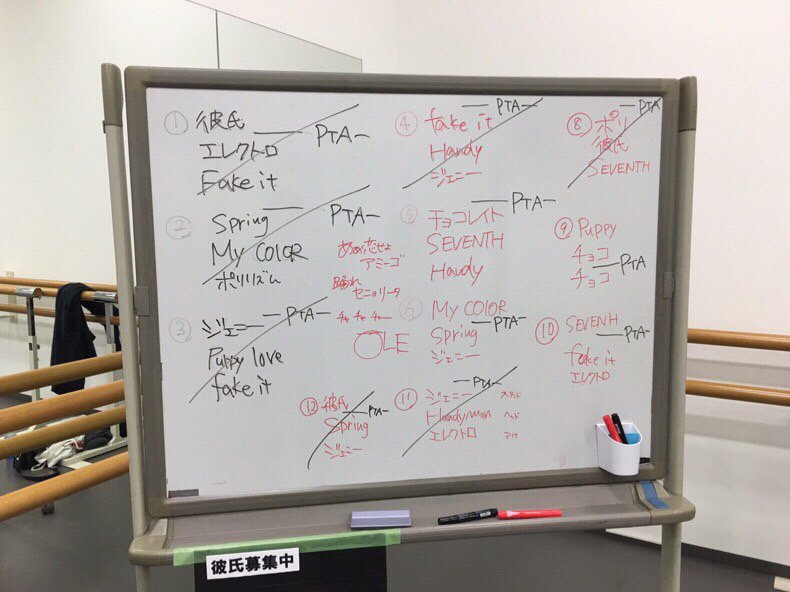 ① 彼氏
— PTA —
エレクトロ
Fake it
② Spring —
PTA —
My COLOR
ポリリズム
③ ジェニー — PTA —
Puppy love
fake it
アミーゴ
踊れ
セニョリータ
チャ チャ チャー
OLE
④ — PTA —
fake it
Handy
ジェニー
⑤ — PTA —
チョコレイト
SEVENTH
Handy
⑥ My COLOR
Spring — PTA —
ジェニー
⑧ — PTA
ポリ
彼氏
SEVENTH
⑨ Puppy
チョコ
— PTA
チョコ
⑩ SEVENTH
— PTA —
fake it
エレクトロ
⑪ — PTA —
ジェニー
Handyman
エレクトロ
⑫ 彼氏
— PTA —
Spring
ジェニー
彼氏募集中